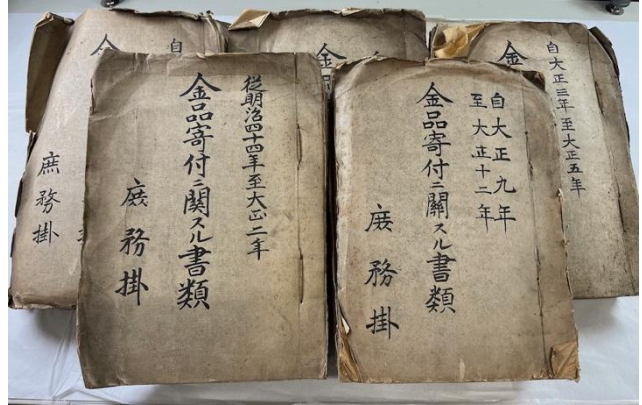 従明治四十四年至大正二年
金品寄付ニ関スル書類
庶務掛
自大正九年
至大正十二年
金品寄付ニ關スル書類
庶務掛
自大正三年至大正五年
金
金
自
庶務掛
金